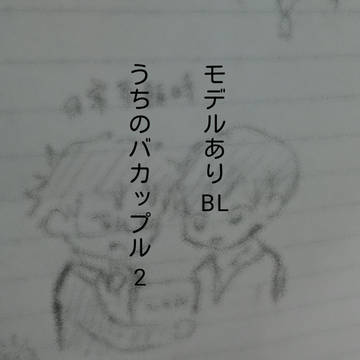 モデルあり BL
うちのバカップル 2